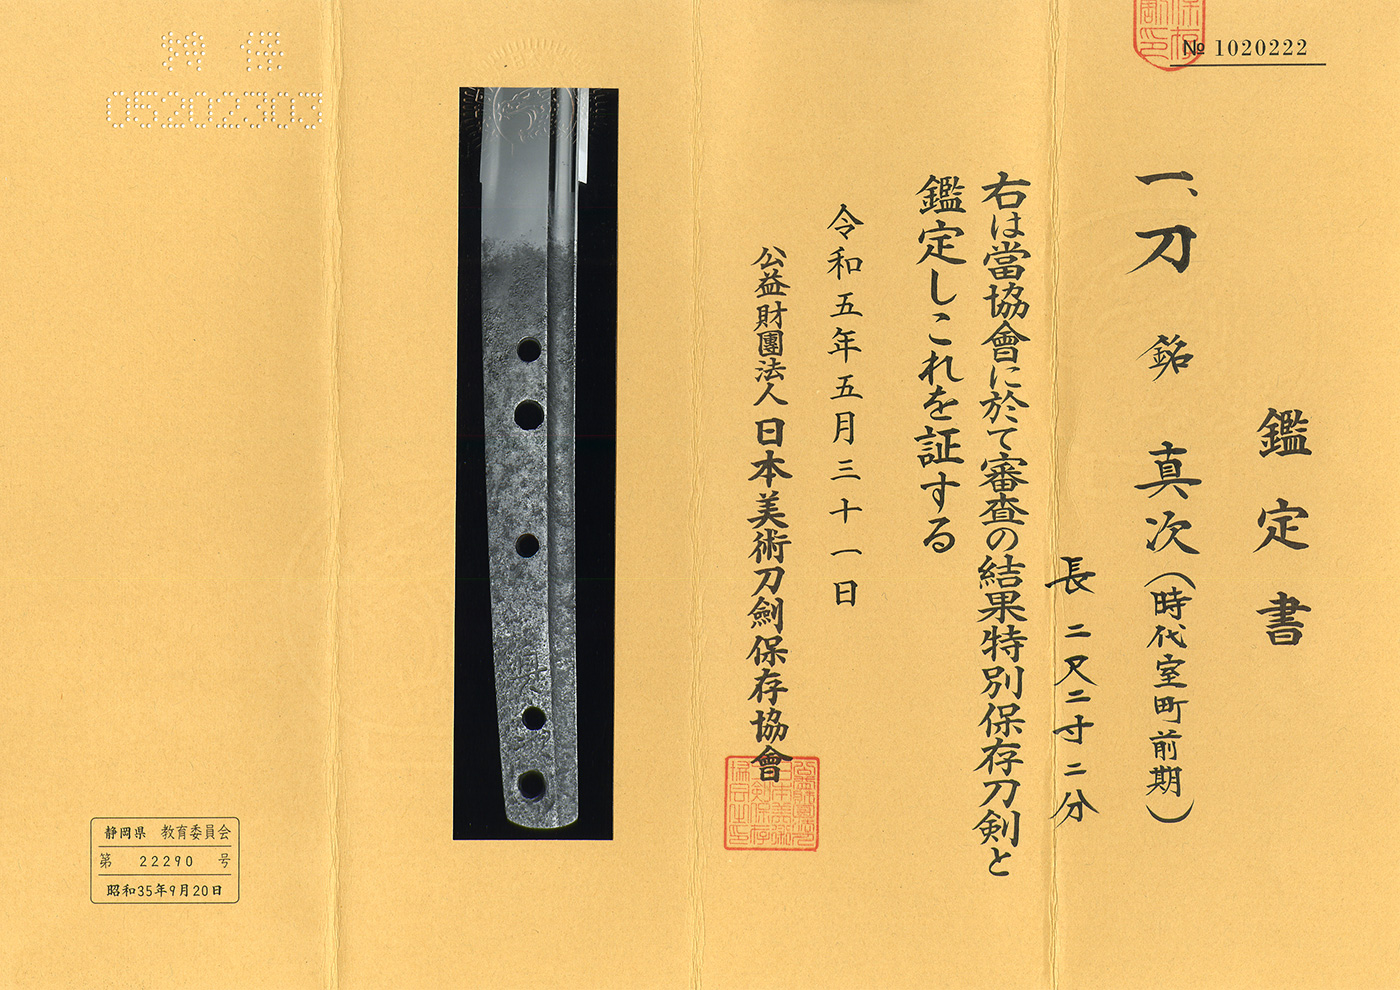 № 1020222
鑑定書
一、刀 銘 真次(時代室町前期)
長二尺二寸二分
右は當協會に於て審査の結果特別保存刀剣と
鑑定しこれを証する
令和五年五月三十一日
公益財團法人 日本美術刀劍保存協會
特保
05202303
静岡県 教育委員会
第 22290 号
昭和35年9月20日